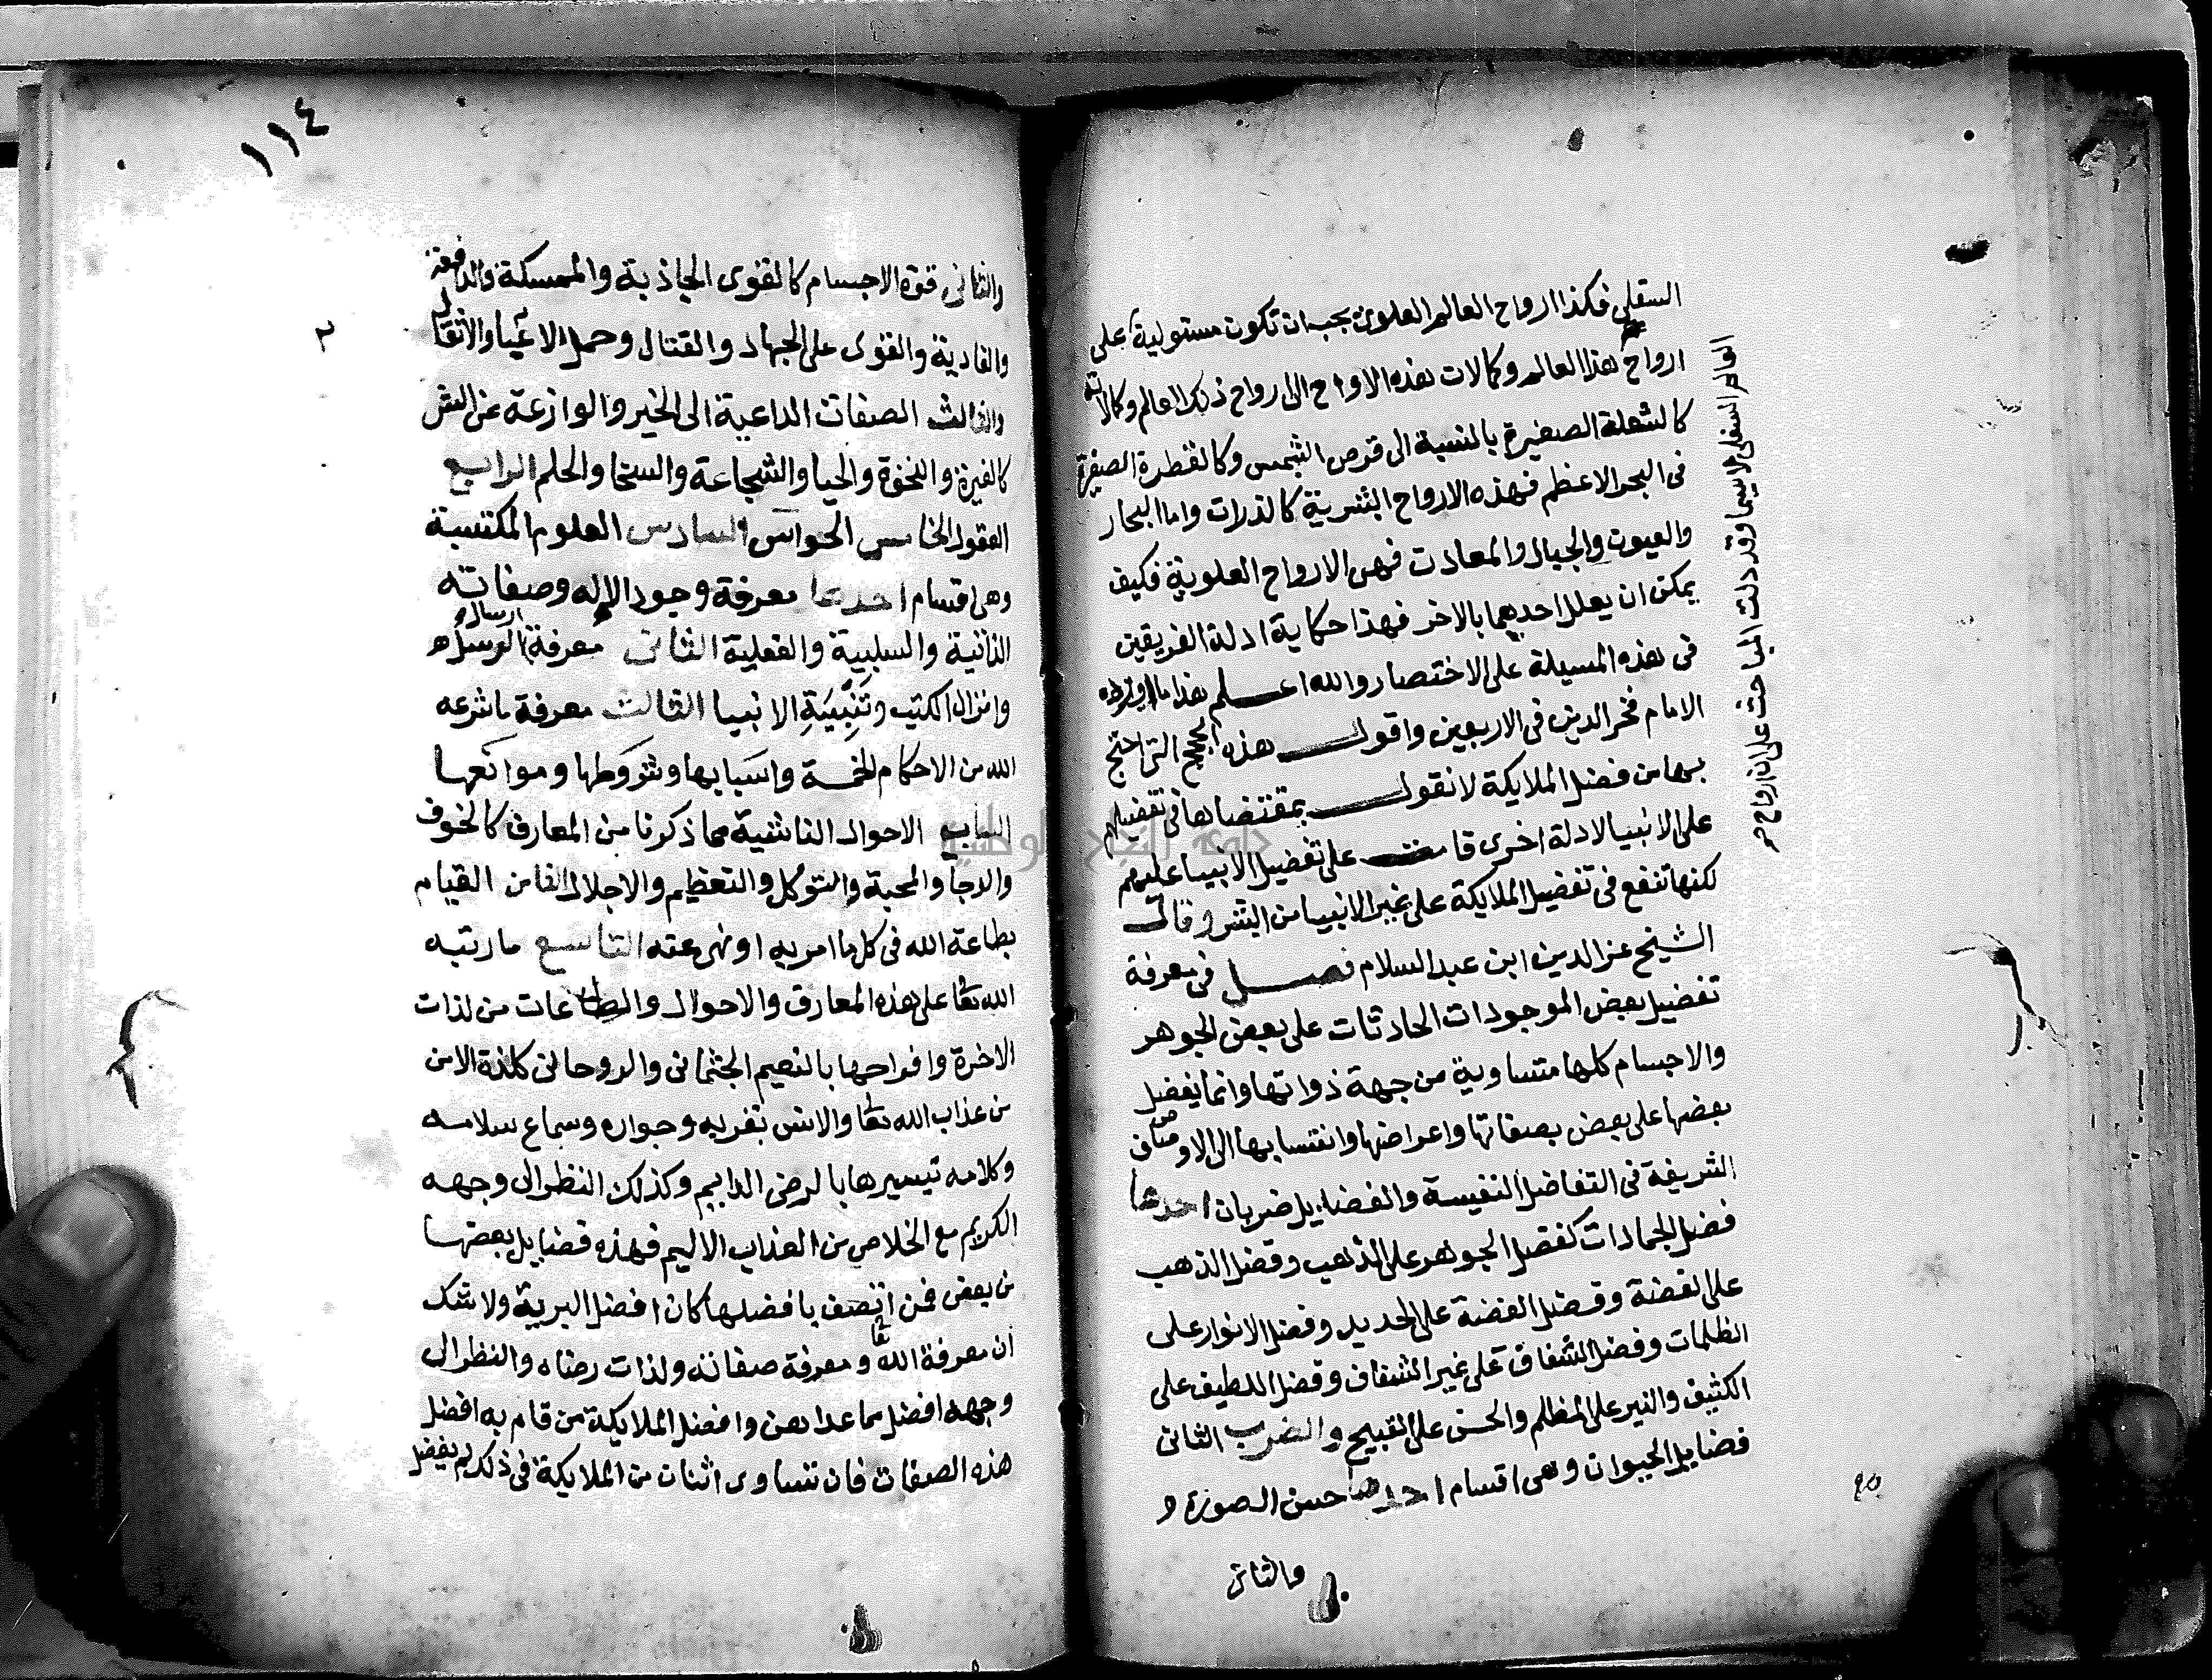 السفلي فكذا ارواح العالم العلوي يجب ان تكون مستولية على
ارواح هذا العالم وكمالات هذه الارواح الى رواح ذلك العالم وكمالاته
كالشعلة الصغيرة بالنسبة الى قرص الشمس وكالقطرة الصغيرة
في البحر الاعظم فهذه الارواح البشرية كالذرات واما البحار
والعيون والجبال والمعادن فهي الارواح العلوية فكيف
يمكن ان يعلل احديهما بالاخر فهذا حكاية ادلة الفريقين
في هذه المسيلة على الاختصار والله اعلم هذا ما اورده
الامام فخر الدين في الاربعين واقول هذه الحجج التي احتج
بها من فضل الملايكة لا نقول بمقتضاها في تفضيلهم
على الانبيا لادلة اخرى قامت على تفضيل الانبيا عليهم
لكنها تنفع في تفضيل الملايكة على غير الانبيا من البشر وقال
الشيخ عز الدين ابن عبد السلام فصل في معرفة
تفضيل بعض الموجودات الحادثات على بعض الجوهر
والاجسام كلها متساوية من جهة ذواتها وانما يفضل
بعضها على بعض بصفاتها واعراضها وانتسابها الى الاوصاف
الشريفة في التفاضل النفيسة والفضايل ضربان احدها
فضل الجمادات كفضل الجوهر على الذهب وفضل الذهب
على الفضة وفضل الفضة على الحديد وفضل الانوار على
الظلمات وفضل الشفاف على غير الشفاف وفضل اللطيف على
الكثيف والنير على المظلم والحسن على القبيح والضرب الثاني
فضايل الحيوان وهي اقسام احدها حسن الصورة و
والثاني
العالم السفلي لاسيما وقد دلت المباحث على ان ارواح
١١٤
والثاني قوة الاجسام كالقوى الجاذبة والممسكة والدافعة
والغادية والقوى على الجهاد والقتال وحمل الاعيا والاثقال
والثالث الصفات الداعية الى الخير والوازعة عن الشر
كالغيرة والنخوة والحيا والشجاعة والسخا والحلم الرابع
العقول الخامس الحواس السادس العلوم المكتسبة
وهي اقسام احدها معرفة وجود الاله وصفاته
الذاتية والسلبية والفعلية الثاني معرفة ارسال الرسل
وانزال الكتب وتنبية الانبيا الثالث معرفة ما شرعه
الله من الاحكام الخمسة واسبابها وشروطها وموانعها
السابع الاحوال الناشية مما ذكرنا من المعارف كالخوف
والرجا والمحبة والتوكل والتعظيم والاجلال الثامن القيام
بطاعة الله في كل ما امر به او نهى عنه التاسع ما رتبه
الله تعا على هذه المعارف والاحوال والطاعات من لذات
الاخرة وافراحها بالنعيم الجثماني والروحاني كلذة الامن
من عذاب الله تعا والانس بقربه وجواره وسماع سلامه
وكلامه تيسيرها بالرضى الدايم وكذلك النظر الى وجهه
الكريم مع الخلاص من العذاب الاليم فهذه فضايل بعضها
من بعض فمن اتصف بافضلها كان افضل البرية ولا شك
ان معرفة الله تعا ومعرفة صفاته ولذات رضاه والنظر الى
وجهه افضل مما عداهن وافضل الملايكة من قام به افضل
هذه الصفات فان تساوى اثنان من الملايكة في ذلك لم يفضل